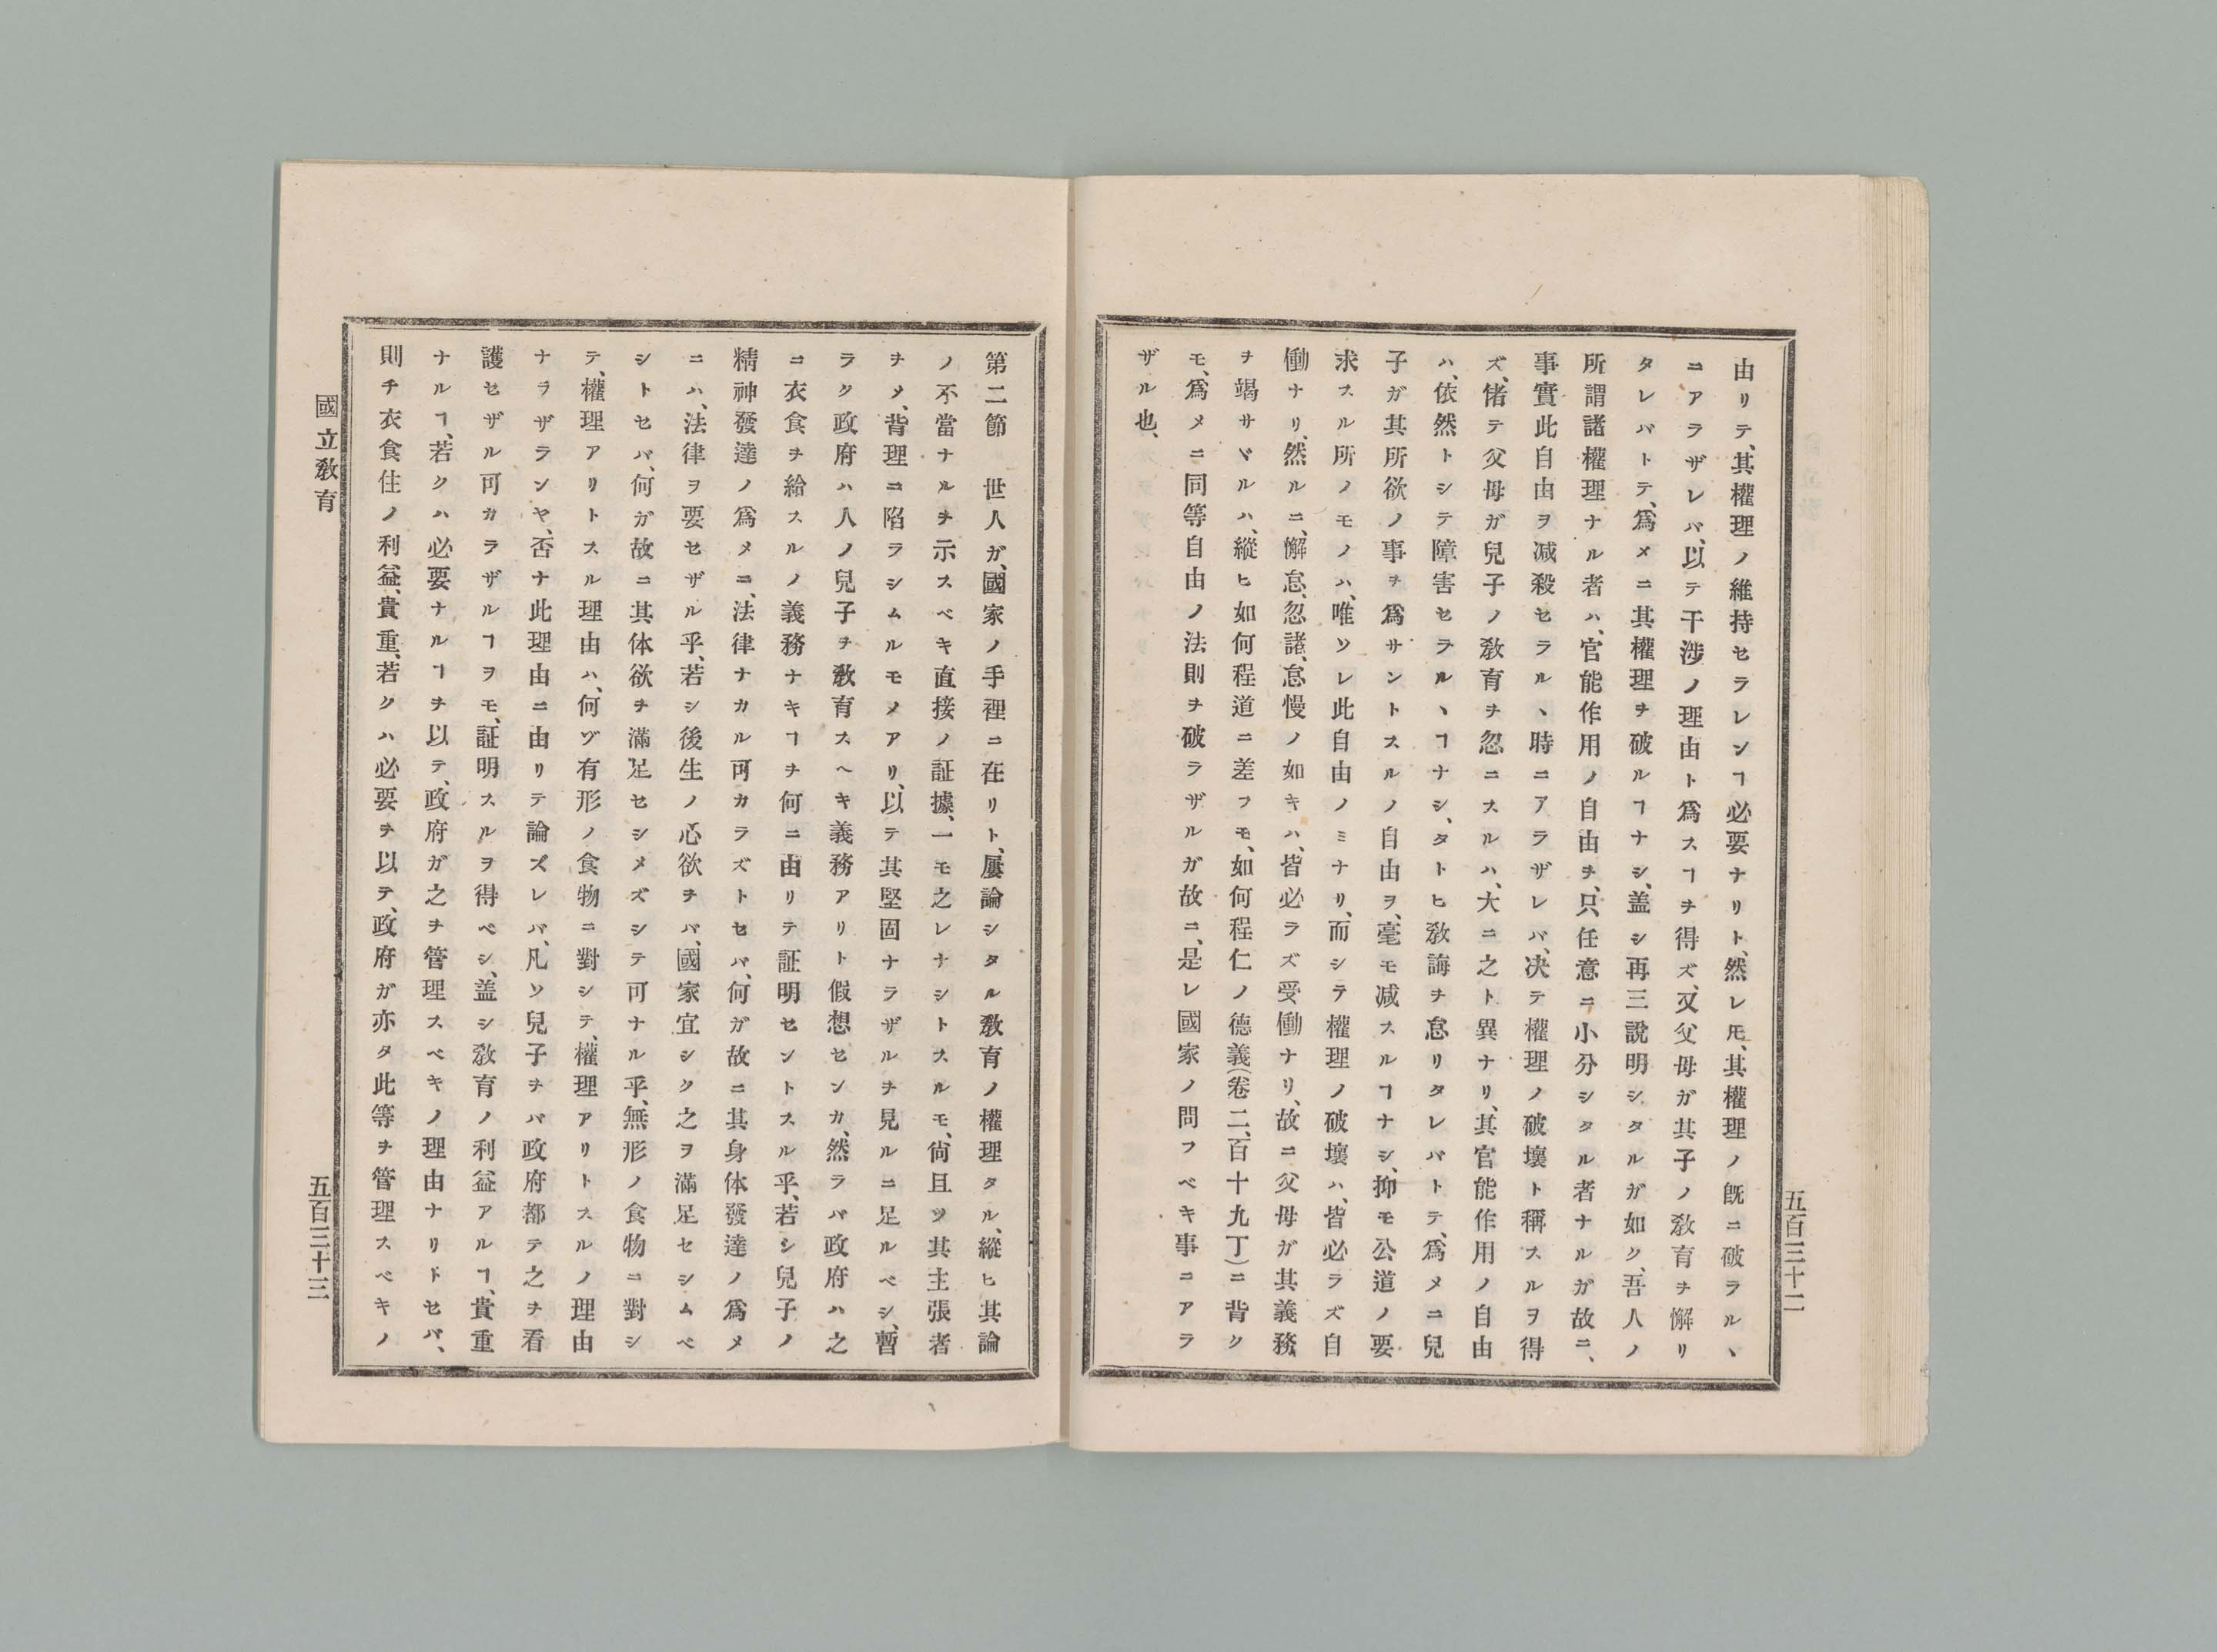 五百三十二
由リテ、其權理ノ維持セラレンヿ必要ナリト、然レ𪜈、其權理ノ既ニ破ラル、
ニアラザレバ、以テ干渉ノ理由ト爲スヿヲ得ズ、又父母ガ其子ノ敎育ヲ懈リ
タレバトテ、爲メニ其權理ヲ破ルヿナシ、盖シ再三說明シタルガ如ク、吾人ノ
所謂諸權理ナル者ハ、官能作用ノ自由ヲ、只任意ニ小分シタル者ナルガ故ニ、
事實此自由ヲ减殺セラル、時ニアラザレバ、决テ權理ノ破壞ト稱スルヲ得
ズ、偖テ父母ガ兒子ノ敎育ヲ忽ニスルハ、大ニ之ト異ナリ、其官能作用ノ自由
ハ、依然トシテ障害セラル、ヿナシ、タトヒ敎誨ヲ怠リタレバトテ、爲メニ兒
子ガ其所欲ノ事ヲ爲サントスルノ自由ヲ、毫モ减スルヿナシ、抑モ公道ノ要
求スル所ノモノハ、唯ソレ此自由ノミナリ、而シテ權理ノ破壞ハ、皆必ラズ自
働ナリ、然ルニ、懈怠、忽諸、怠慢ノ如キハ、皆必ラズ受働ナリ、故ニ父母ガ其義務
ヲ竭サヾルハ、縱ヒ如何程道ニ差フモ、如何程仁ノ德義(卷二、百十九丁)ニ背ク
モ、爲メニ同等自由ノ法則ヲ破ラザルガ故ニ、是レ國家ノ問フベキ事ニアラ
ザル也、
第二節　世人ガ、國家ノ手裡ニ在リト、屢論シタル敎育ノ權理タル、縱ヒ其論
ノ不當ナルヲ示スベキ直接ノ証據、一モ之レナシトスルモ、尙且ツ其主張者
ヲメ、背理ニ陷ラシムルモメアリ、以テ其堅固ナラザルヲ見ルニ足ルベシ、暫
ラク政府ハ人ノ兒子ヲ敎育スヘキ義務アリト假想センカ、然ラバ政府ハ之
ニ衣食ヲ給スルノ義務ナキヿヲ何ニ由リテ証明セントスル乎、若シ兒子ノ
精神發達ノ爲メニ、法律ナカル可カラズトセバ、何ガ故ニ其身体發達ノ爲メ
ニハ、法律ヲ要セザル乎、若シ後生ノ心欲ヲバ、國家宜シク之ヲ滿足セシムベ
シトセバ、何ガ故ニ其体欲ヲ滿足セシメズシテ可ナル乎、無形ノ食物ニ對シ
テ、權理アリトスル理由ハ、何ヅ有形ノ食物ニ對シテ、權理アリトスルノ理由
ナラザランヤ、否ナ此理由ニ由リテ論ズレバ、凡ソ兒子ヲバ政府都テ之ヲ看
護セザル可カラザルヿヲモ、証明スルヲ得ベシ、盖シ敎育ノ利益アルヿ、貴重
ナルヿ、若クハ必要ナルヿヲ以テ、政府ガ之ヲ管理スベキノ理由ナリトセバ、
則チ衣食住ノ利益、貴重、若クハ必要ヲ以テ、政府ガ亦タ此等ヲ管理スベキノ
國立敎育
五百三十三